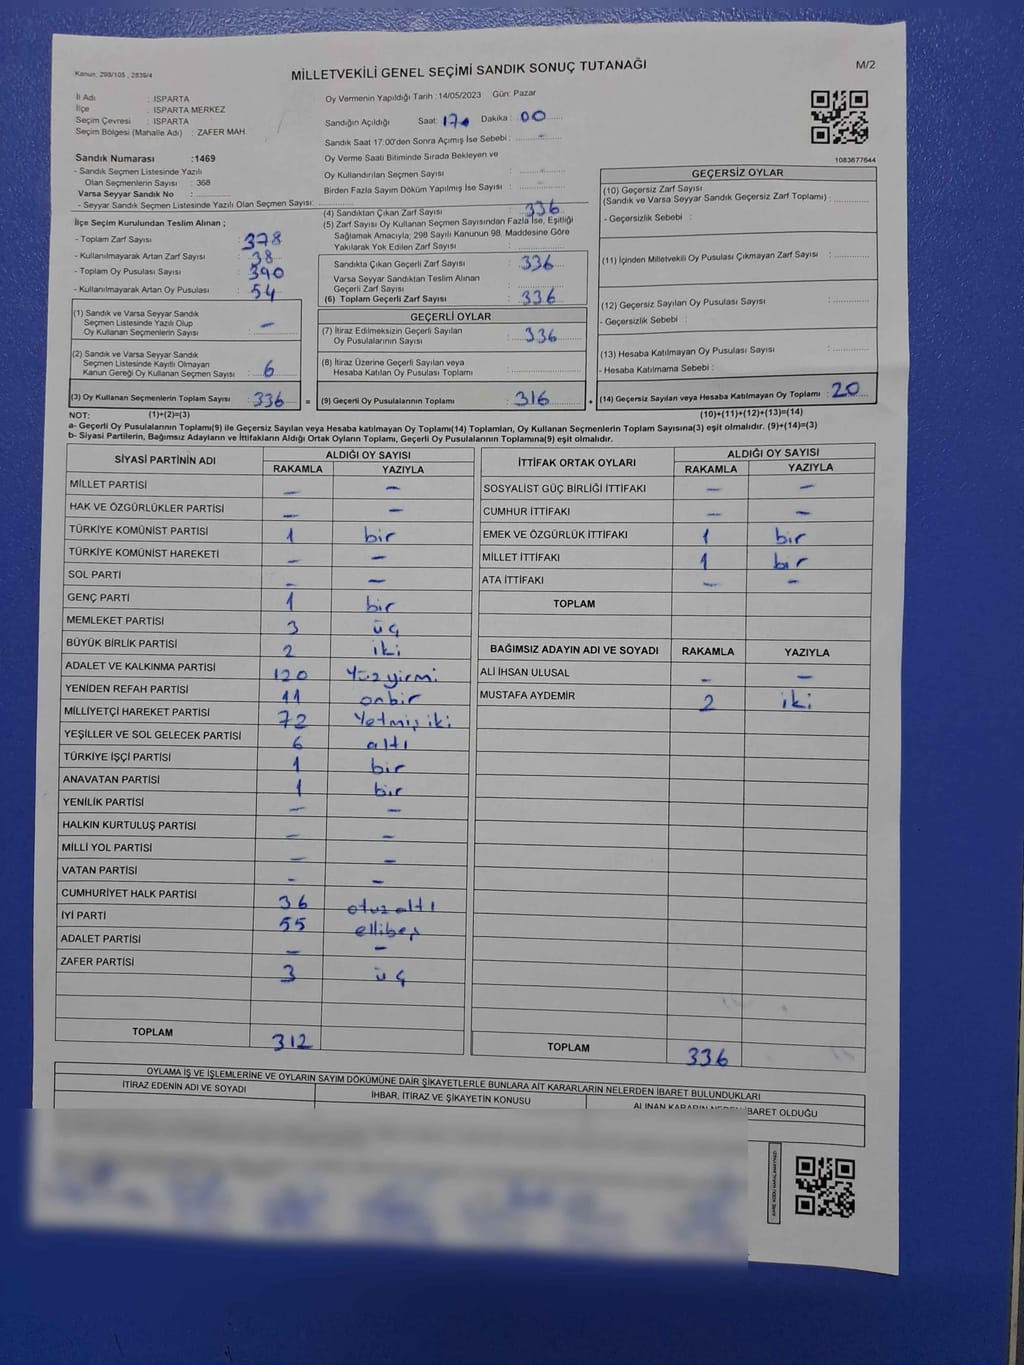 Kanun: 298/105 , 2839/4
MİLLETVEKİLİ GENEL SEÇİMİ SANDIK SONUÇ TUTANAĞI
M/2
İl Adı : ISPARTA
İlçe : ISPARTA MERKEZ
Seçim Çevresi : ISPARTA
Seçim Bölgesi (Mahalle Adı) : ZAFER MAH.
Oy Vermenin Yapıldığı Tarih :14/05/2023 Gün: Pazar
Sandığın Açıldığı Saat: 17 Dakika : 00
Sandık Saat 17:00'den Sonra Açımış İse Sebebi : -
Oy Verme Saati Bitiminde Sırada Bekleyen ve
Oy Kullandırılan Seçmen Sayısı :
Birden Fazla Sayım Döküm Yapılmış İse Sayısı :
1083677644
Sandık Numarası :1469
- Sandık Seçmen Listesinde Yazılı
Olan Seçmenlerin Sayısı : 368
Varsa Seyyar Sandık No :
- Seyyar Sandık Seçmen Listesinde Yazılı Olan Seçmen Sayısı:
İlçe Seçim Kurulundan Teslim Alınan ;
- Toplam Zarf Sayısı : 378
- Kullanılmayarak Artan Zarf Sayısı : 38
- Toplam Oy Pusulası Sayısı : 390
- Kullanılmayarak Artan Oy Pusulası : 54
(1) Sandık ve Varsa Seyyar Sandık
Seçmen Listesinde Yazılı Olup
Oy Kullanan Seçmenlerin Sayısı : -
(2) Sandık ve Varsa Seyyar Sandık
Seçmen Listesinde Kayıtlı Olmayan
Kanun Gereği Oy Kullanan Seçmen Sayısı : 6
(3) Oy Kullanan Seçmenlerin Toplam Sayısı : 336 =
(4) Sandıktan Çıkan Zarf Sayısı : 336
(5) Zarf Sayısı Oy Kullanan Seçmen Sayısından Fazla İse, Eşitliği
Sağlamak Amacıyla; 298 Sayılı Kanunun 98. Maddesine Göre
Yakılarak Yok Edilen Zarf Sayısı :
Sandıkta Çıkan Geçerli Zarf Sayısı : 336
Varsa Seyyar Sandıktan Teslim Alınan
Geçerli Zarf Sayısı :
(6) Toplam Geçerli Zarf Sayısı : 336
GEÇERLİ OYLAR
(7) İtiraz Edilmeksizin Geçerli Sayılan
Oy Pusulalarının Sayısı : 336
(8) İtiraz Üzerine Geçerli Sayılan veya
Hesaba Katılan Oy Pusulası Toplamı :
(9) Geçerli Oy Pusulalarının Toplamı : 316 +
GEÇERSİZ OYLAR
(10) Geçersiz Zarf Sayısı
(Sandık ve Varsa Seyyar Sandık Geçersiz Zarf Toplamı) :
- Geçersizlik Sebebi :
(11) İçinden Milletvekili Oy Pusulası Çıkmayan Zarf Sayısı :
(12) Geçersiz Sayılan Oy Pusulası Sayısı :
- Geçersizlik Sebebi :
(13) Hesaba Katılmayan Oy Pusulası Sayısı :
- Hesaba Katılmama Sebebi :
(14) Geçersiz Sayılan veya Hesaba Katılmayan Oy Toplamı : 20
NOT: (1)+(2)=(3) (10)+(11)+(12)+(13)=(14)
a- Geçerli Oy Pusulalarının Toplamı(9) ile Geçersiz Sayılan veya Hesaba katılmayan Oy Toplamı(14) Toplamları, Oy Kullanan Seçmenlerin Toplam Sayısına(3) eşit olmalıdır. (9)+(14)=(3)
b- Siyasi Partilerin, Bağımsız Adayların ve İttifakların Aldığı Ortak Oyların Toplamı, Geçerli Oy Pusulalarının Toplamına(9) eşit olmalıdır.
SİYASİ PARTİNİN ADI ALDIĞI OY SAYISI
RAKAMLA YAZIYLA
MİLLET PARTİSİ - -
HAK VE ÖZGÜRLÜKLER PARTİSİ - -
TÜRKİYE KOMÜNİST PARTİSİ 1 bir
TÜRKİYE KOMÜNİST HAREKETİ - -
SOL PARTİ - -
GENÇ PARTİ 1 bir
MEMLEKET PARTİSİ 3 üç
BÜYÜK BİRLİK PARTİSİ 2 iki
ADALET VE KALKINMA PARTİSİ 120 Yüzyirmi
YENİDEN REFAH PARTİSİ 11 onbir
MİLLİYETÇİ HAREKET PARTİSİ 72 Yetmiş iki
YEŞİLLER VE SOL GELECEK PARTİSİ 6 altı
TÜRKİYE İŞÇİ PARTİSİ 1 bir
ANAVATAN PARTİSİ 1 bir
YENİLİK PARTİSİ - -
HALKIN KURTULUŞ PARTİSİ - -
MİLLİ YOL PARTİSİ - -
VATAN PARTİSİ - -
CUMHURİYET HALK PARTİSİ 36 otuz altı
İYİ PARTİ 55 ellibeş
ADALET PARTİSİ - -
ZAFER PARTİSİ 3 üç
TOPLAM 312
İTTİFAK ORTAK OYLARI ALDIĞI OY SAYISI
RAKAMLA YAZIYLA
SOSYALİST GÜÇ BİRLİĞİ İTTİFAKI - -
CUMHUR İTTİFAKI - -
EMEK VE ÖZGÜRLÜK İTTİFAKI 1 bir
MİLLET İTTİFAKI 1 bir
ATA İTTİFAKI - -
TOPLAM
BAĞIMSIZ ADAYIN ADI VE SOYADI RAKAMLA YAZIYLA
ALİ İHSAN ULUSAL - -
MUSTAFA AYDEMİR 2 iki
TOPLAM 336
OYLAMA İŞ VE İŞLEMLERİNE VE OYLARIN SAYIM DÖKÜMÜNE DAİR ŞİKAYETLERLE BUNLARA AİT KARARLARIN NELERDEN İBARET BULUNDUKLARI
İTİRAZ EDENİN ADI VE SOYADI İHBAR, İTİRAZ VE ŞİKAYETİN KONUSU ALINAN KARARIN NEDEN İBARET OLDUĞU